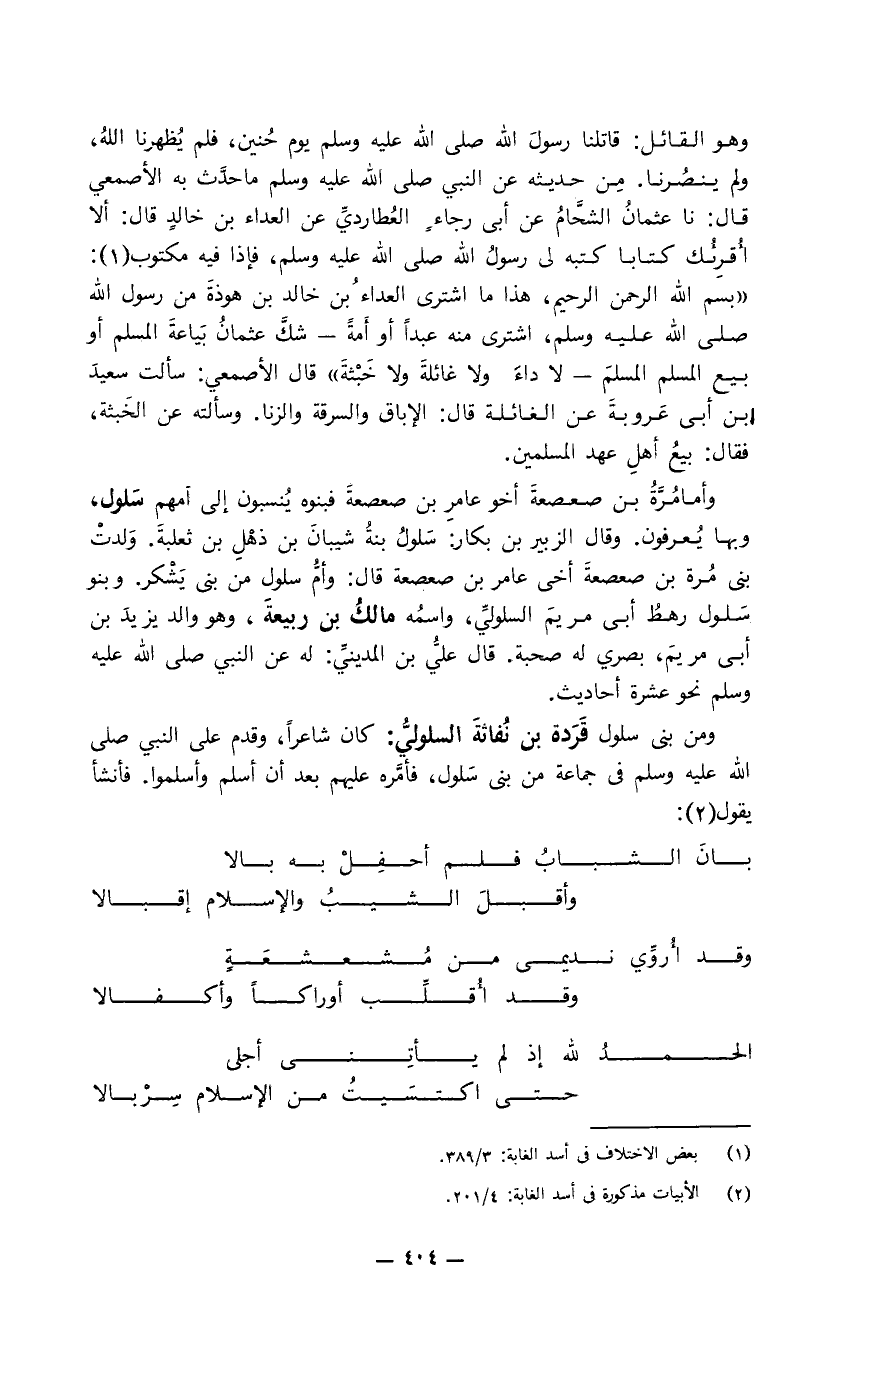 وهو القائل: قاتلنا رسولَ الله صلى الله عليه وسلم يوم حُنين، فلم يُظهرنا اللهُ،
ولم ينصُرنا. مِن حديثه عن النبي صلى الله عليه وسلم ماحدَّث به الأصمعي
قال: نا عثمانُ الشحَّامُ عن أبى رجاءٍ العُطارديِّ عن العداء بن خالدٍ قال: ألا
أُقرِئُك كتابا كتبه لى رسولُ الله صلى الله عليه وسلم، فإذا فيه مكتوب(١):
«بسم الله الرحمن الرحيم، هذا ما اشترى العداءُ بن خالد بن هوذةَ من رسول الله
صلى الله عليه وسلم، اشترى منه عبداً أو أمةً — شكَّ عثمانُ بَياعةَ المسلم أو
بيع المسلم المسلمَ — لا داءَ ولا غائلةَ ولا خَبْثةَ» قال الأصمعي: سألت سعيدَ
ابن أبى عَروبةَ عن الغائلة قال: الإباق والسرقة والزنا. وسألته عن الخَبثة،
فقال: بيعُ أهلِ عهد المسلمين.
وأمامُرَّةُ بن صعصعةَ أخو عامرِ بن صعصعةَ فبنوه يُنسبون إلى أمهم سَلول،
وبها يُعرفون. وقال الزبير بن بكار: سَلولُ بنةُ شيبانَ بن ذهْلِ بن ثعلبةَ. وَلدتْ
بنى مُرة بن صعصعةَ أخى عامر بن صعصعة قال: وأمُّ سلول من بنى يَشْكر. وبنو
سَلول رهطُ أبى مريمَ السلوليِّ، واسمُه مالكُ بن ربيعةَ ، وهو والد يزيدَ بن
أبى مريمَ، بصري له صحبة. قال عليُّ بن المدينيِّ: له عن النبي صلى الله عليه
وسلم نحو عشرة أحاديث.
ومن بنى سلول قَرَدة بن نُفاثةَ السلوليُّ: كان شاعراً، وقدم على النبي صلى
الله عليه وسلم فى جماعة من بنى سَلول، فأمَّره عليهم بعد أن أسلم وأسلموا. فأنشأ
يقول(٢):
بـانَ الـشـبـابُ فـلـم أحـفِـلْ بـه بـالا
وأقـبـلَ الـشـيـبُ والإسـلام إقـبـالا
وقـد أُروِّي نـديمـى مـن مُـشـعـشـعَـةٍ
وقـد أُقـلِّـب أوراكـاً وأكـفـالا
الحـمـدُ لله إذ لم يـأتِـنـى أجلى
حـتـى اكـتـسَـيـتُ مـن الإسـلام سِـرْبـالا
(١) بعض الاختلاف فى أسد الغابة: ٣/‏٣٨٩.
(٢) الأبيات مذكورة فى أسد الغابة: ٤/‏٢٠١.
— ٤٠٤ —